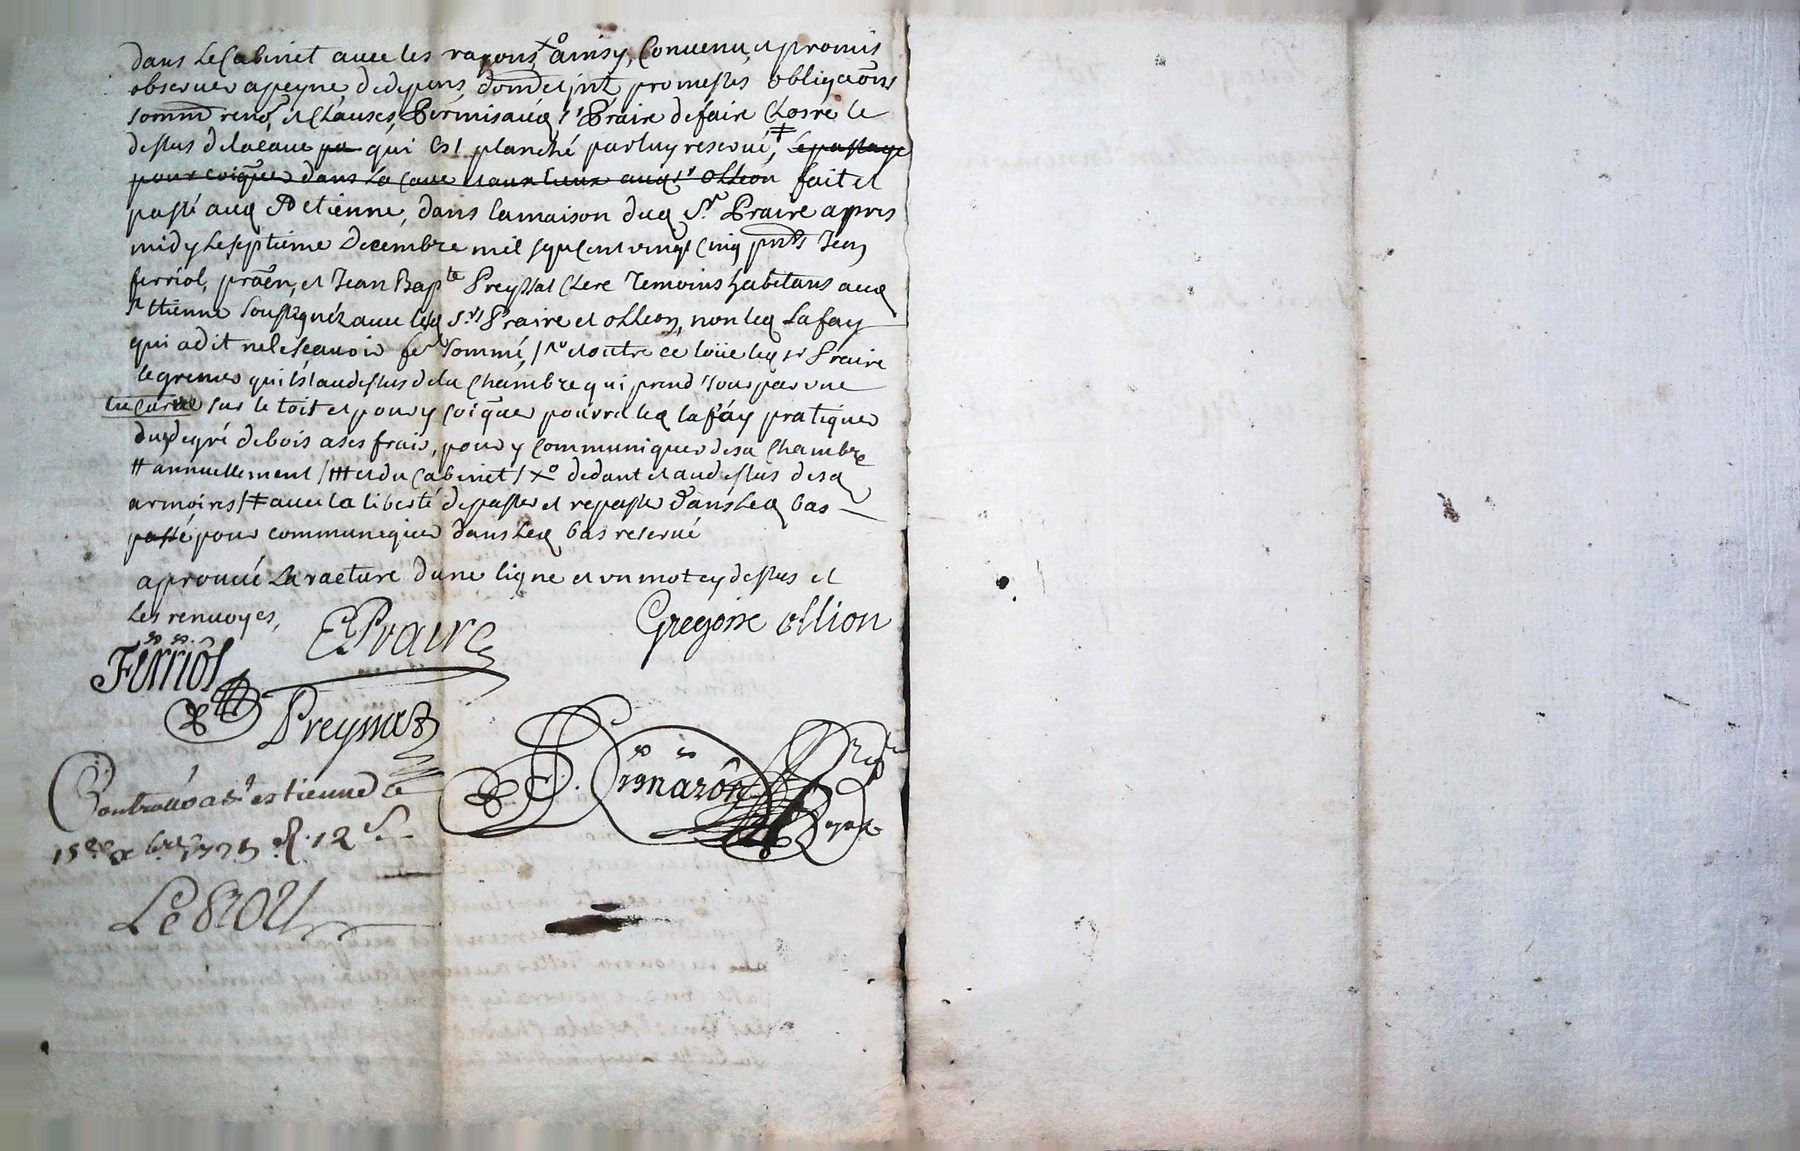 dans le Cabinet avec les rayons, +o ainsy, Convenu, et promis
observer a peyne de depens, dom et int promesses obligaons
somm renõ, et Clauses, Permis aud sr Praire de faire Clorre le
dessus de la cave pa qui est planché par luy reservé, ‡ le passage
pour coiquer dans la Cave et aux lieux aud sr ollion fait et
passé aud St etienne, dans la maison dud Sr Praire apres
midy le septieme Decembre mil sept Cent vingt Cinq pnts Jean
ferriol, praën, et Jean Bapte Preynat Clerc Temoins habitans aud
St ettienne soussignéz avec lesd Srs Praire et ollion, non led Lafay
qui a dit ne le sçavoir de Sommé, /# et outre ce loüe led sr Praire
le grenier qui est au dessus de la Chambre qui prend Jour par une
lucarne sur le toit et pour y coiquer pourra led lafay pratiquer
du degré de bois a ses frais, pour y communiquer de sa Chambre
# annuellement /### et du Cabinet / +o dedant et au dessus desd
armoires / ‡ avec la liberté de passer et repasser dans led bas
passé pour communiquer dans led bas reservé
aprouvé la racture d'une ligne et un mot cy dessus et
les renvoyes,
EPraire
Gregoire ollion
Ferriol
Preynat
Controllé a St estienne le
15e xbre 1725 R. 12 s.